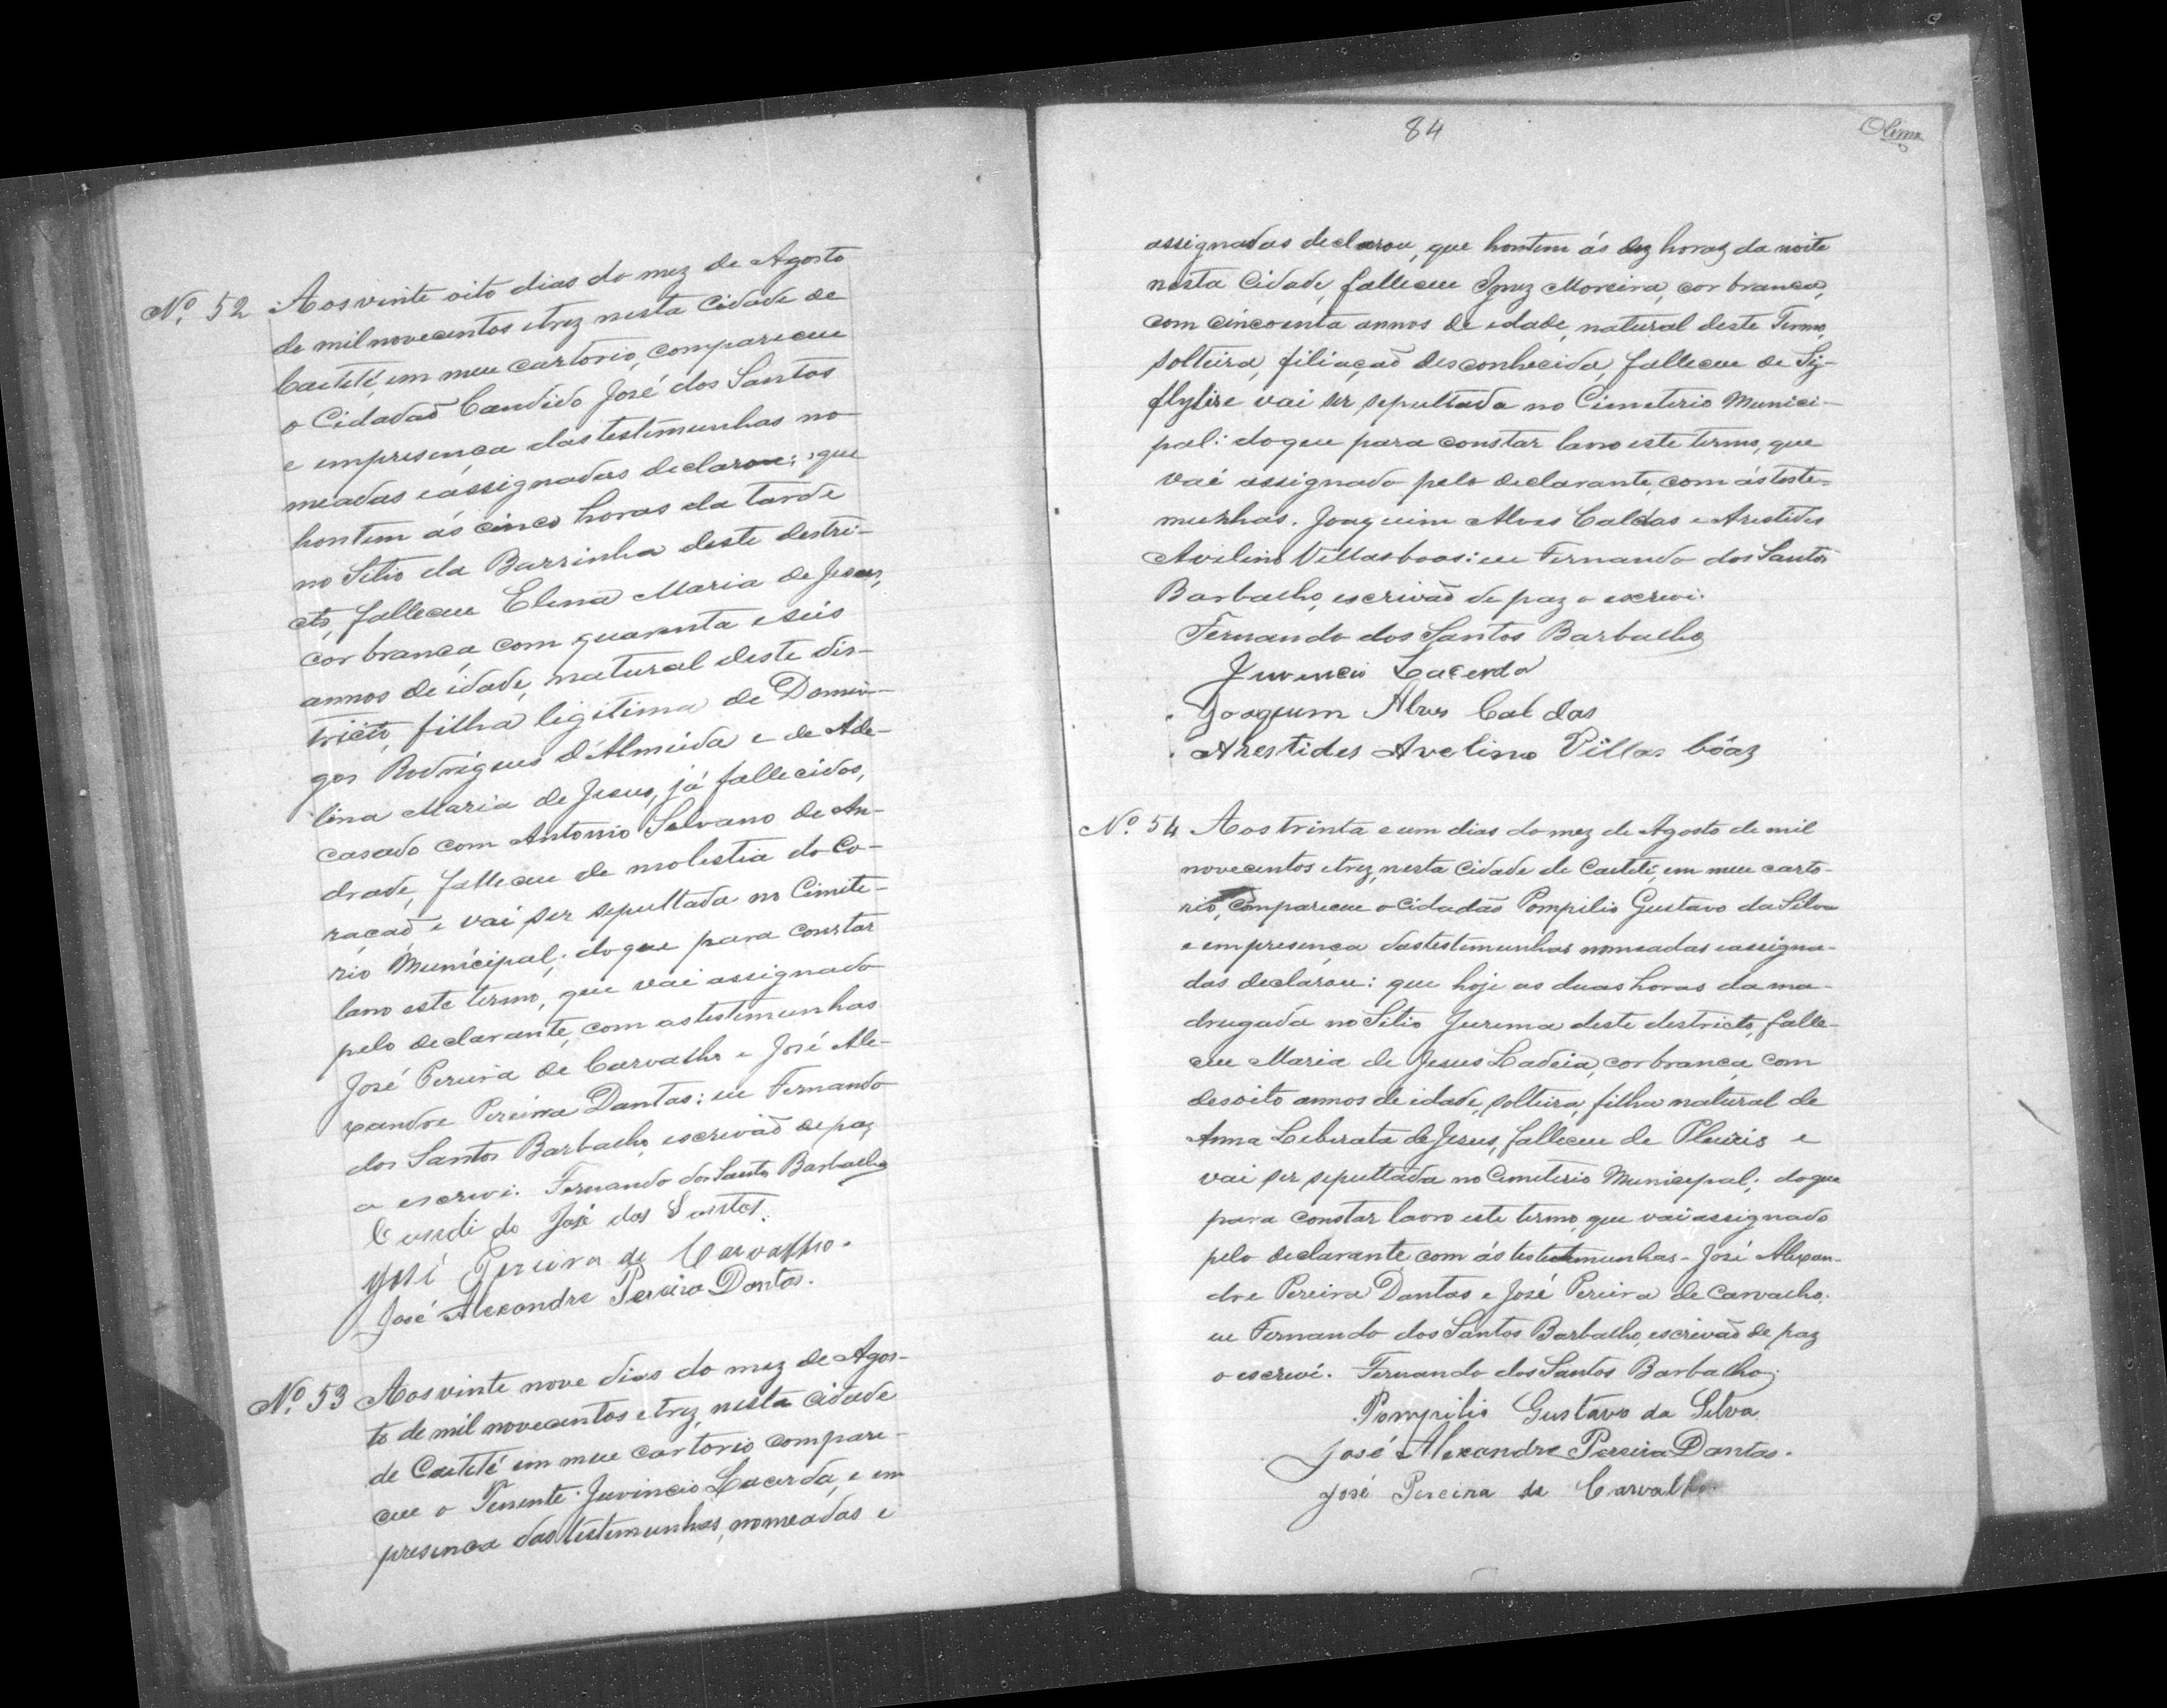 Nº 52 Aos vinte oito dias do mez de Agosto
de mil novecentos e trez nesta Cidade de
Caeteté, em meu cartorio, compareceu
o Cidadaõ Candido José dos Santos
e empresença das testemunhas no-
meadas e assignadas declarou: que
hontem ás cinco horas da tarde
no Sitio da Barrinha deste destri-
cto, falleceu Elena Maria de Jesus,
cor branca, com quarenta e seis
annos de idade, natural deste dis-
tricto, filha legitima de Domin-
gos Rodrigues d'Almeida e de Ade-
lina Maria de Jesus, já fallecidos,
casado com Antonio Selvano de An-
drade, falleceu de molestia do Co-
raçaõ e vai ser sepultada no Cimite-
rio Municipal; do que para constar
lavro este termo, que vai assignado
pelo declarante, com as testemunhas
José Pereira de Carvalho e José Ale-
xandre Pereira Dantas: eu Fernando
dos Santos Barbalho, escrivaõ de paz
o escrevi. Fernando dos Santos Barbalho
Candido José dos Santos.
José Pereira de Carvalho.
José Alexandre Pereira Dantas.
Nº 53 Aos vinte nove dias do mez de Agos-
to de mil novecentos e trez, nesta cidade
de Caeteté em meu cartorio compare-
ceu o Tenente Juvincio Lacerda, e em
presenca das testemunhas, nomeadas e
84
assignadas declarou, que hontem ás dez horas da noite
nesta Cidade, falleceu Ignez Moreira, cor branca,
com cincoenta annos de edade, natural deste Termo,
solteira, filiaçaõ desconhecida, falleceu de Sy-
flylise vai ser sepultada no Cimeterio Munici-
pal: do que para constar lavro este termo, que
vai assignado pelo declarante, com ás teste-
munhas. Joaquim Alves Caldas e Arestides
Avelino Villasboas: eu Fernando dos Santos
Barbalho, escrivaõ de paz o escrevi.
Fernando dos Santos Barbalho
Juvencio Lacerda
Joaquim Alves Caldas
Arestides Avelino Villas bôaz
Nº 54 Aos trinta e um dias do mez de Agosto de mil
novecentos e trez, nesta Cidade de Caeteté, em meu carto-
rio, compareceu o cidadão Pompilio Gustavo da Silva
e em presença das testemunhas nomeadas e assigna-
das declarou: que hoje as duas horas da ma-
drugada no Sitio Jurema deste destricto, falle-
ceu Maria de Jesus Ladeia, cor branca, com
desoito annos de idade, solteira, filha natural de
Anna Leberata de Jesus, falleceu de Pleuris e
vai ser sepultada no Cemiterio Municepal; do que
para constar lavro este termo, que vai assignado
pelo declarante, com ás testemunhas - José Alexan-
dre Pereira Dantas e José Pereira de Carvalho.
eu Fernando dos Santos Barbalho, escrivaõ de paz
o escrevi. Fernando dos Santos Barbalho
Pompilio Gustavo da Silva
José Alexandre Pereira Dantas.
José Pereira de Carvalho.